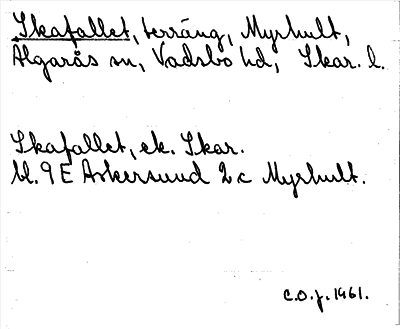 Skafallet, terräng, Myrhult,
Älgarås sn, Vadsbo hd, Skar. l.
Skafallet, ek. Skar.
bl. 9 E Askersund 2 c Myrhult.
C.O.J. 1961.